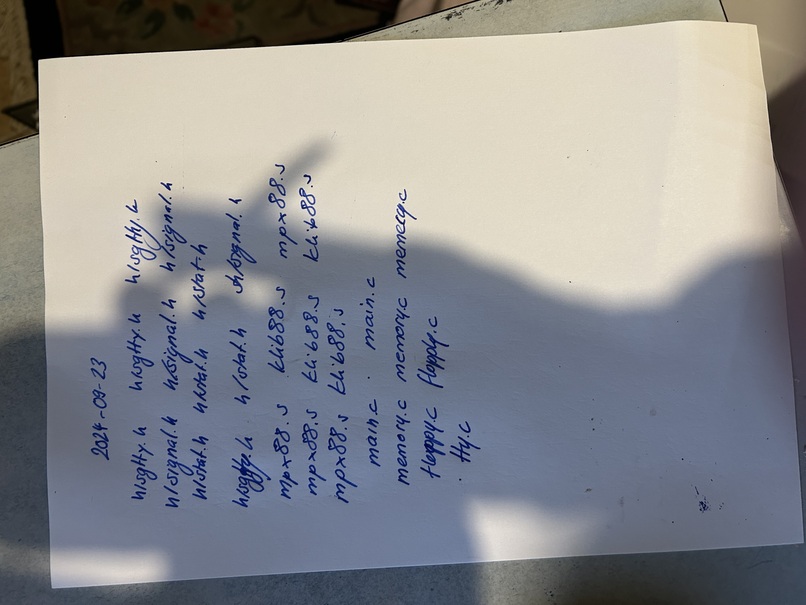 2024-09-23
h/sgtty.h h/sgtty.h h/sgtty.h
h/signal.h h/signal.h h/signal.h
h/stat.h h/stat.h h/stat.h
h/sgtty.h h/stat.h h/signal.h
mpx88.s klib88.s mpx88.s
mpx88.s klib88.s klib88.s
mpx88.s klib88.s
main.c . main.c
memory.c memory.c memory.c
floppy.c floppy.c
. tty.c